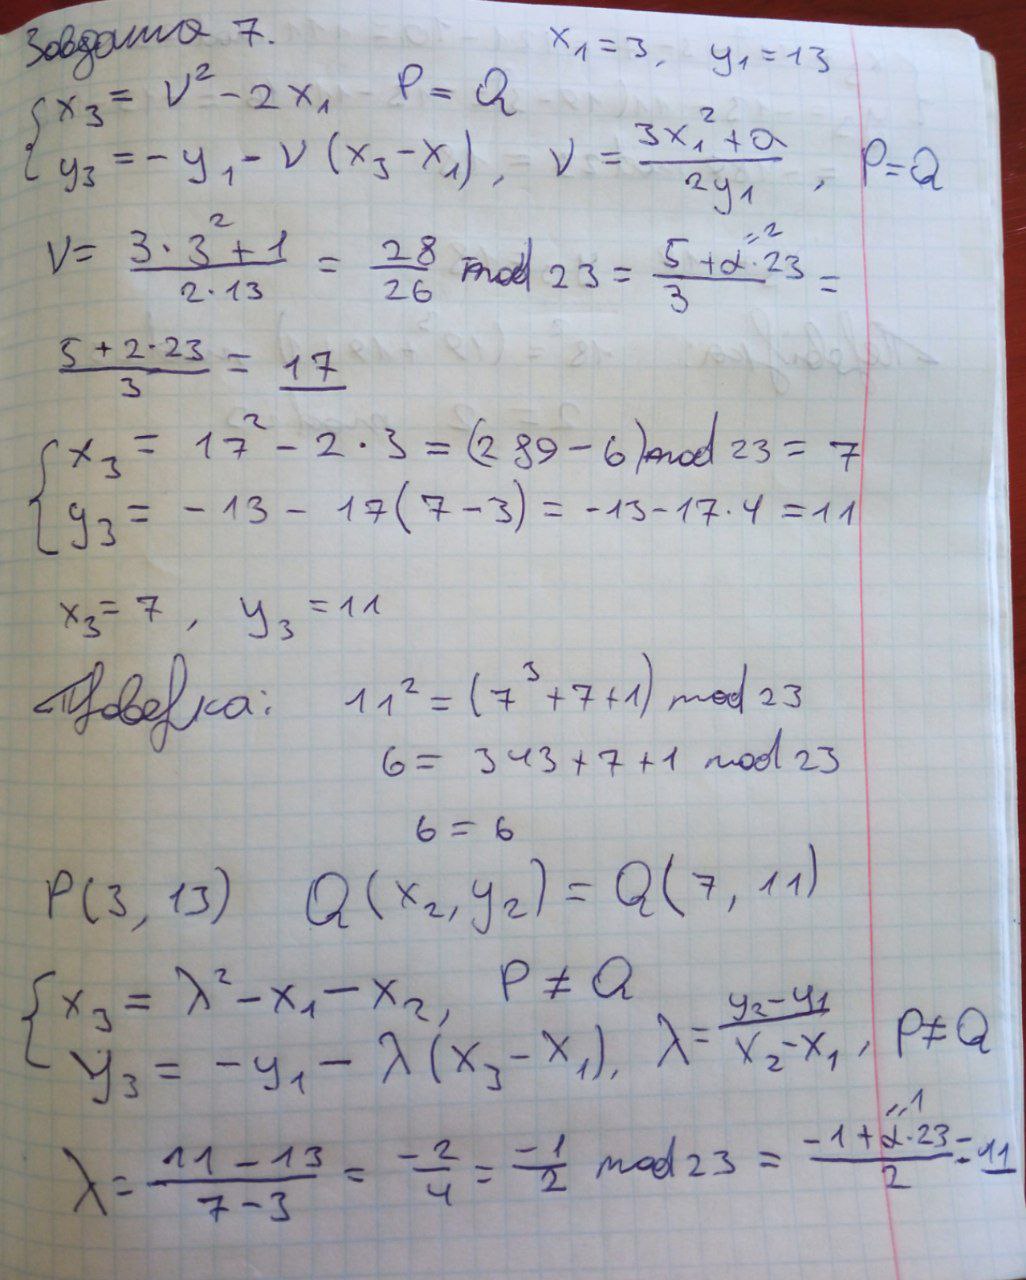 Завдання 7. x₁ = 3, y₁ = 13
{ x₃ = ν² - 2x₁ P = Q
y₃ = -y₁ - ν (x₃ - x₁), ν = (3x₁² + a)/(2y₁), P = Q
ν = (3·3² + 1)/(2·13) = 28/26 mod 23 = (5 + α·23)/3 = =2
(5 + 2·23)/3 = 17
{ x₃ = 17² - 2·3 = (289 - 6) mod 23 = 7
y₃ = -13 - 17(7 - 3) = -13 - 17·4 = 11
x₃ = 7, y₃ = 11
Проверка: 11² = (7³ + 7 + 1) mod 23
6 = 343 + 7 + 1 mod 23
6 = 6
P(3, 13) Q(x₂, y₂) = Q(7, 11)
{ x₃ = λ² - x₁ - x₂, P ≠ Q
y₃ = -y₁ - λ(x₃ - x₁), λ = (y₂ - y₁)/(x₂ - x₁), P ≠ Q
λ = (11 - 13)/(7 - 3) = -2/4 = -1/2 mod 23 = (-1 + α·23)/2 = 11 =1